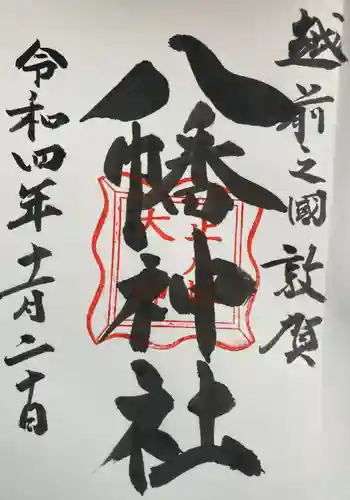 越前之國敦賀
八幡神社
令和四年十一月二十日